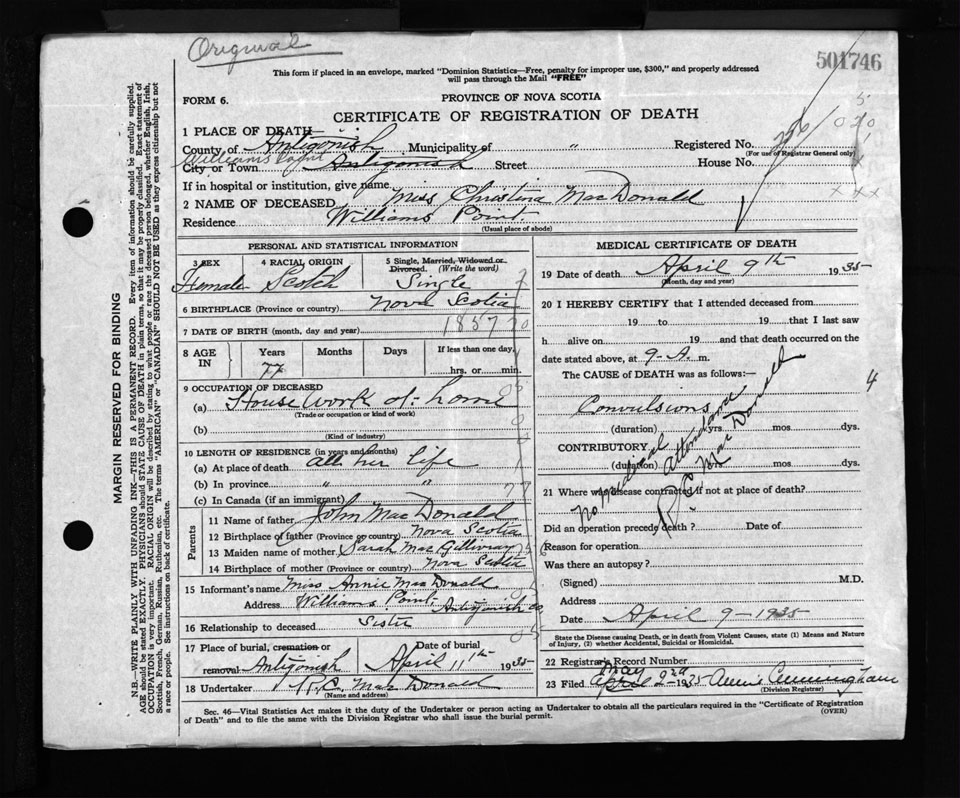 Original
501746
This form if placed in an envelope, marked "Dominion Statistics—Free, penalty for improper use, $300," and properly addressed
will pass through the Mail "FREE"
FORM 6.
PROVINCE OF NOVA SCOTIA
CERTIFICATE OF REGISTRATION OF DEATH
1 PLACE OF DEATH
County of Antigonish Municipality of " Registered No.
(For use of Registrar General only)
Williams Point
City or Town Antigonish Street House No.
If in hospital or institution, give name
2 NAME OF DECEASED Miss Christina MacDonald
Residence Williams Point
(Usual place of abode)
PERSONAL AND STATISTICAL INFORMATION
3 SEX 4 RACIAL ORIGIN 5 Single, Married, Widowed or Divorced. (Write the word)
Female Scotch Single
6 BIRTHPLACE (Province or country) Nova Scotia
7 DATE OF BIRTH (month, day and year) 1857
8 AGE IN Years Months Days If less than one day.
77 hrs. or min.
9 OCCUPATION OF DECEASED
(a) House work at home
(Trade or occupation or kind of work)
(b)
(Kind of industry)
10 LENGTH OF RESIDENCE (in years and months)
(a) At place of death all her life
(b) In province " "
(c) In Canada (if an immigrant)
Parents
11 Name of father John MacDonald
12 Birthplace of father (Province or country) Nova Scotia
13 Maiden name of mother Sarah MacGillivray
14 Birthplace of mother (Province or country) Nova Scotia
15 Informant's name Miss Annie MacDonald
Address Williams Point Antigonish Co
16 Relationship to deceased Sister
17 Place of burial, cremation or removal Antigonish Date of burial April 11th 1935
18 Undertaker MacDonald
(Name and address)
MEDICAL CERTIFICATE OF DEATH
19 Date of death April 9th 1935
(Month, day and year)
20 I HEREBY CERTIFY that I attended deceased from
19 to 19 that I last saw
h alive on 19 and that death occurred on the
date stated above, at 9-A. m.
The CAUSE of DEATH was as follows:—
4
Convulsions
(duration) yrs. mos. dys.
CONTRIBUTORY
(duration) mos. dys.
No medical attendance
MacDonald
21 Where was disease contracted if not at place of death?
Did an operation precede death? Date of
Reason for operation
Was there an autopsy?
(Signed) M.D.
Address
Date April 9-1935
State the Disease causing Death, or in death from Violent Causes, state (1) Means and Nature
of Injury, (2) whether Accidental, Suicidal or Homicidal.
22 Registrar's Record Number
May
23 Filed April 2nd 1935 Annie Cunningham
(Division Registrar)
Sec. 46—Vital Statistics Act makes it the duty of the Undertaker or person acting as Undertaker to obtain all the particulars required in the "Certificate of Registration
of Death" and to file the same with the Division Registrar who shall issue the burial permit.
(OVER)
MARGIN RESERVED FOR BINDING
N.B.—WRITE PLAINLY WITH UNFADING INK—THIS IS A PERMANENT RECORD. Every item of information should be carefully supplied.
AGE should be stated EXACTLY. PHYSICIANS should STATE CAUSE OF DEATH in plain terms, so that it may be properly classified. Exact statement of
OCCUPATION is very important. RACIAL ORIGIN will be described by stating to what people or race the deceased person belonged, whether English, Irish,
Scottish, French, German, Russian, Ruthenian, etc. The terms "AMERICAN" or "CANADIAN" SHOULD NOT BE USED as they express citizenship but not
a race or people. See instructions on back of certificate.